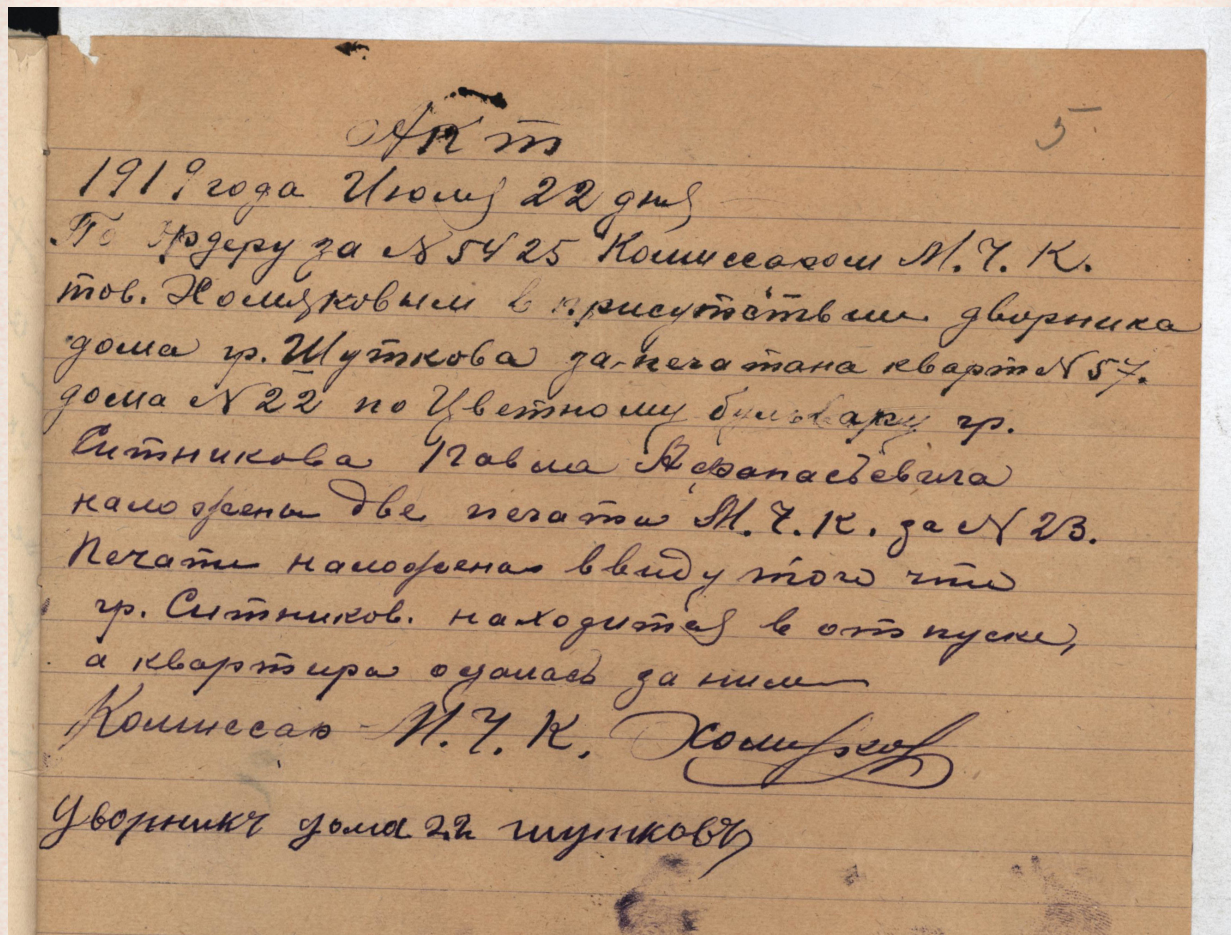 5
Акт
1919 года Июля 22 дня
По Ордеру за N 5425 Комиссаром М.Ч.К.
тов. Хомяковым в присутствии дворника
дома гр. Шуткова за-печатана кварт N 57.
дома N 22 по Цветному бульвару гр.
Ситникова Павла Афанасьевича
наложены две печати М.Ч.К. за N 23.
Печати наложена ввиду того что
гр. Ситников. находится в отпуске,
а квартира осталась за ним
Комиссар М.Ч.К. Хомяков
Дворникъ дома 22 шутковъ